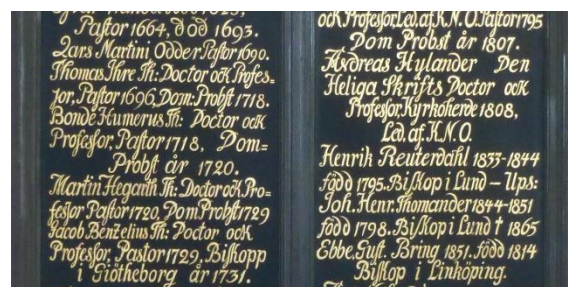 Pastor 1664, död 1693.
Lars Martini Odder Pastor 1690.
Thomas Ihre Th: Doctor och Profes-
sor, Pastor 1696, Dom: Probst 1718.
Bonde Humerus Th: Doctor och
Professor, Pastor 1718, Dom=
Probst år 1720.
Martin Hegardh Th: Doctor och Pro-
fessor Pastor 1720, Dom Probst 1729
Jacob Benzelius Th: Doctor och
Professor, Pastor 1729, Biskopp
i Giötheborg år 1731.
och Professor, Led. af K.N.O. Pastor 1795
Dom Probst år 1807.
Andreas Hylander Den
Heliga Skrifts Doctor och
Professor, Kyrkoherde 1808,
Led. af K.N.O.
Henrik Reuterdahl 1833-1844
född 1795. Biskop i Lund – Ups:
Joh. Henr. Thomander 1844-1851
född 1798. Biskop i Lund † 1865
Ebbe Gust. Bring 1851. född 1814
Biskop i Linköping.